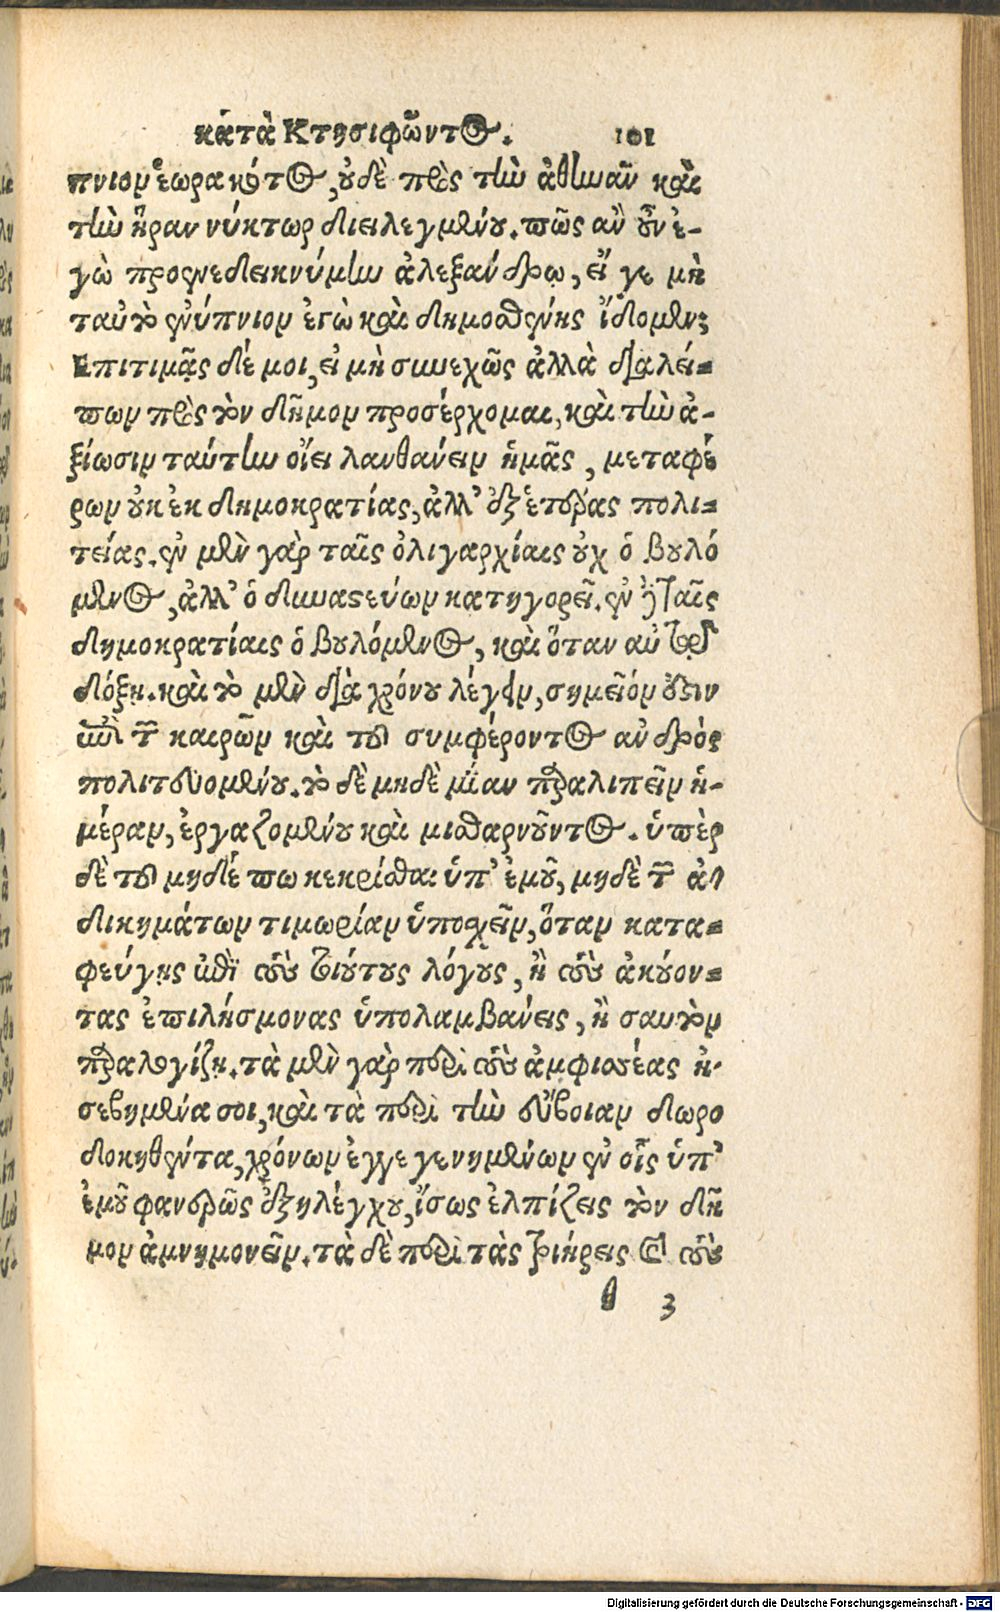 κατὰ Κτησιφῶντος. 101
πνιον ἑωρακότος, οὐδὲ πρὸς τὴν ἀθηνᾶν καὶ
τὴν ἥραν νύκτωρ διειλεγμένου. πῶς ἂν οὖν ἐ-
γὼ προςενεδεικνύμην ἀλεξάνδρῳ, εἴ γε μὴ
ταὐτὸ ἐνύπνιον ἐγὼ καὶ δημοσθένης ἴδομεν;
Επιτιμᾷς δέ μοι, εἰ μὴ συνεχῶς ἀλλὰ διαλεί-
πων πρὸς τὸν δῆμον προσέρχομαι, καὶ τὴν ἀ-
ξίωσιν ταύτην οἴει λανθάνειν ἡμᾶς, μεταφέ
ρων οὐκ ἐκ δημοκρατίας, ἀλλ' ἐξ ἑτέρας πολι-
τείας. ἐν μὲν γὰρ ταῖς ὀλιγαρχίαις οὐχ ὁ βουλό
μενος, ἀλλ' ὁ δυναστεύων κατηγορεῖ. ἐν δὲ ταῖς
δημοκρατίαις ὁ βουλόμενος, καὶ ὅταν αὐτῷ
δόξῃ. καὶ τὸ μὲν διὰ χρόνου λέγειν, σημεῖόν ἐστιν
ἐπὶ τῶν καιρῶν καὶ τοῦ συμφέροντος ἀνδρὸς
πολιτευομένου. τὸ δὲ μηδὲ μίαν παραλιπεῖν ἡ-
μέραν, ἐργαζομένου καὶ μισθαρνοῦντος. ὑπὲρ
δὲ τοῦ μηδέπω κεκρίσθαι ὑπ' ἐμοῦ, μηδὲ τῶν ἀ-
δικημάτων τιμωρίαν ὑποσχεῖν, ὅταν κατα-
φεύγῃς ἐπὶ τοὺς τοιούτους λόγους, ἢ τοὺς ἀκούον-
τας ἐπιλήσμονας ὑπολαμβάνεις, ἢ σαυτὸν
παραλογίζῃ. τὰ μὲν γὰρ περὶ τοὺς ἀμφισσέας ἠ-
σεβημένα σοι, καὶ τὰ περὶ τὴν εὔβοιαν δωρο
δοκηθέντα, χρόνων ἐγγεγενημένων ἐν οἷς ὑπ'
ἐμοῦ φανερῶς ἐξηλέγχου, ἴσως ἐλπίζεις τὸν δῆ
μον ἀμνημονεῖν. τὰ δὲ περὶ τὰς τριήρεις καὶ τοὺς
3
Digitalisierung gefördert durch die Deutsche Forschungsgemeinschaft - DFG